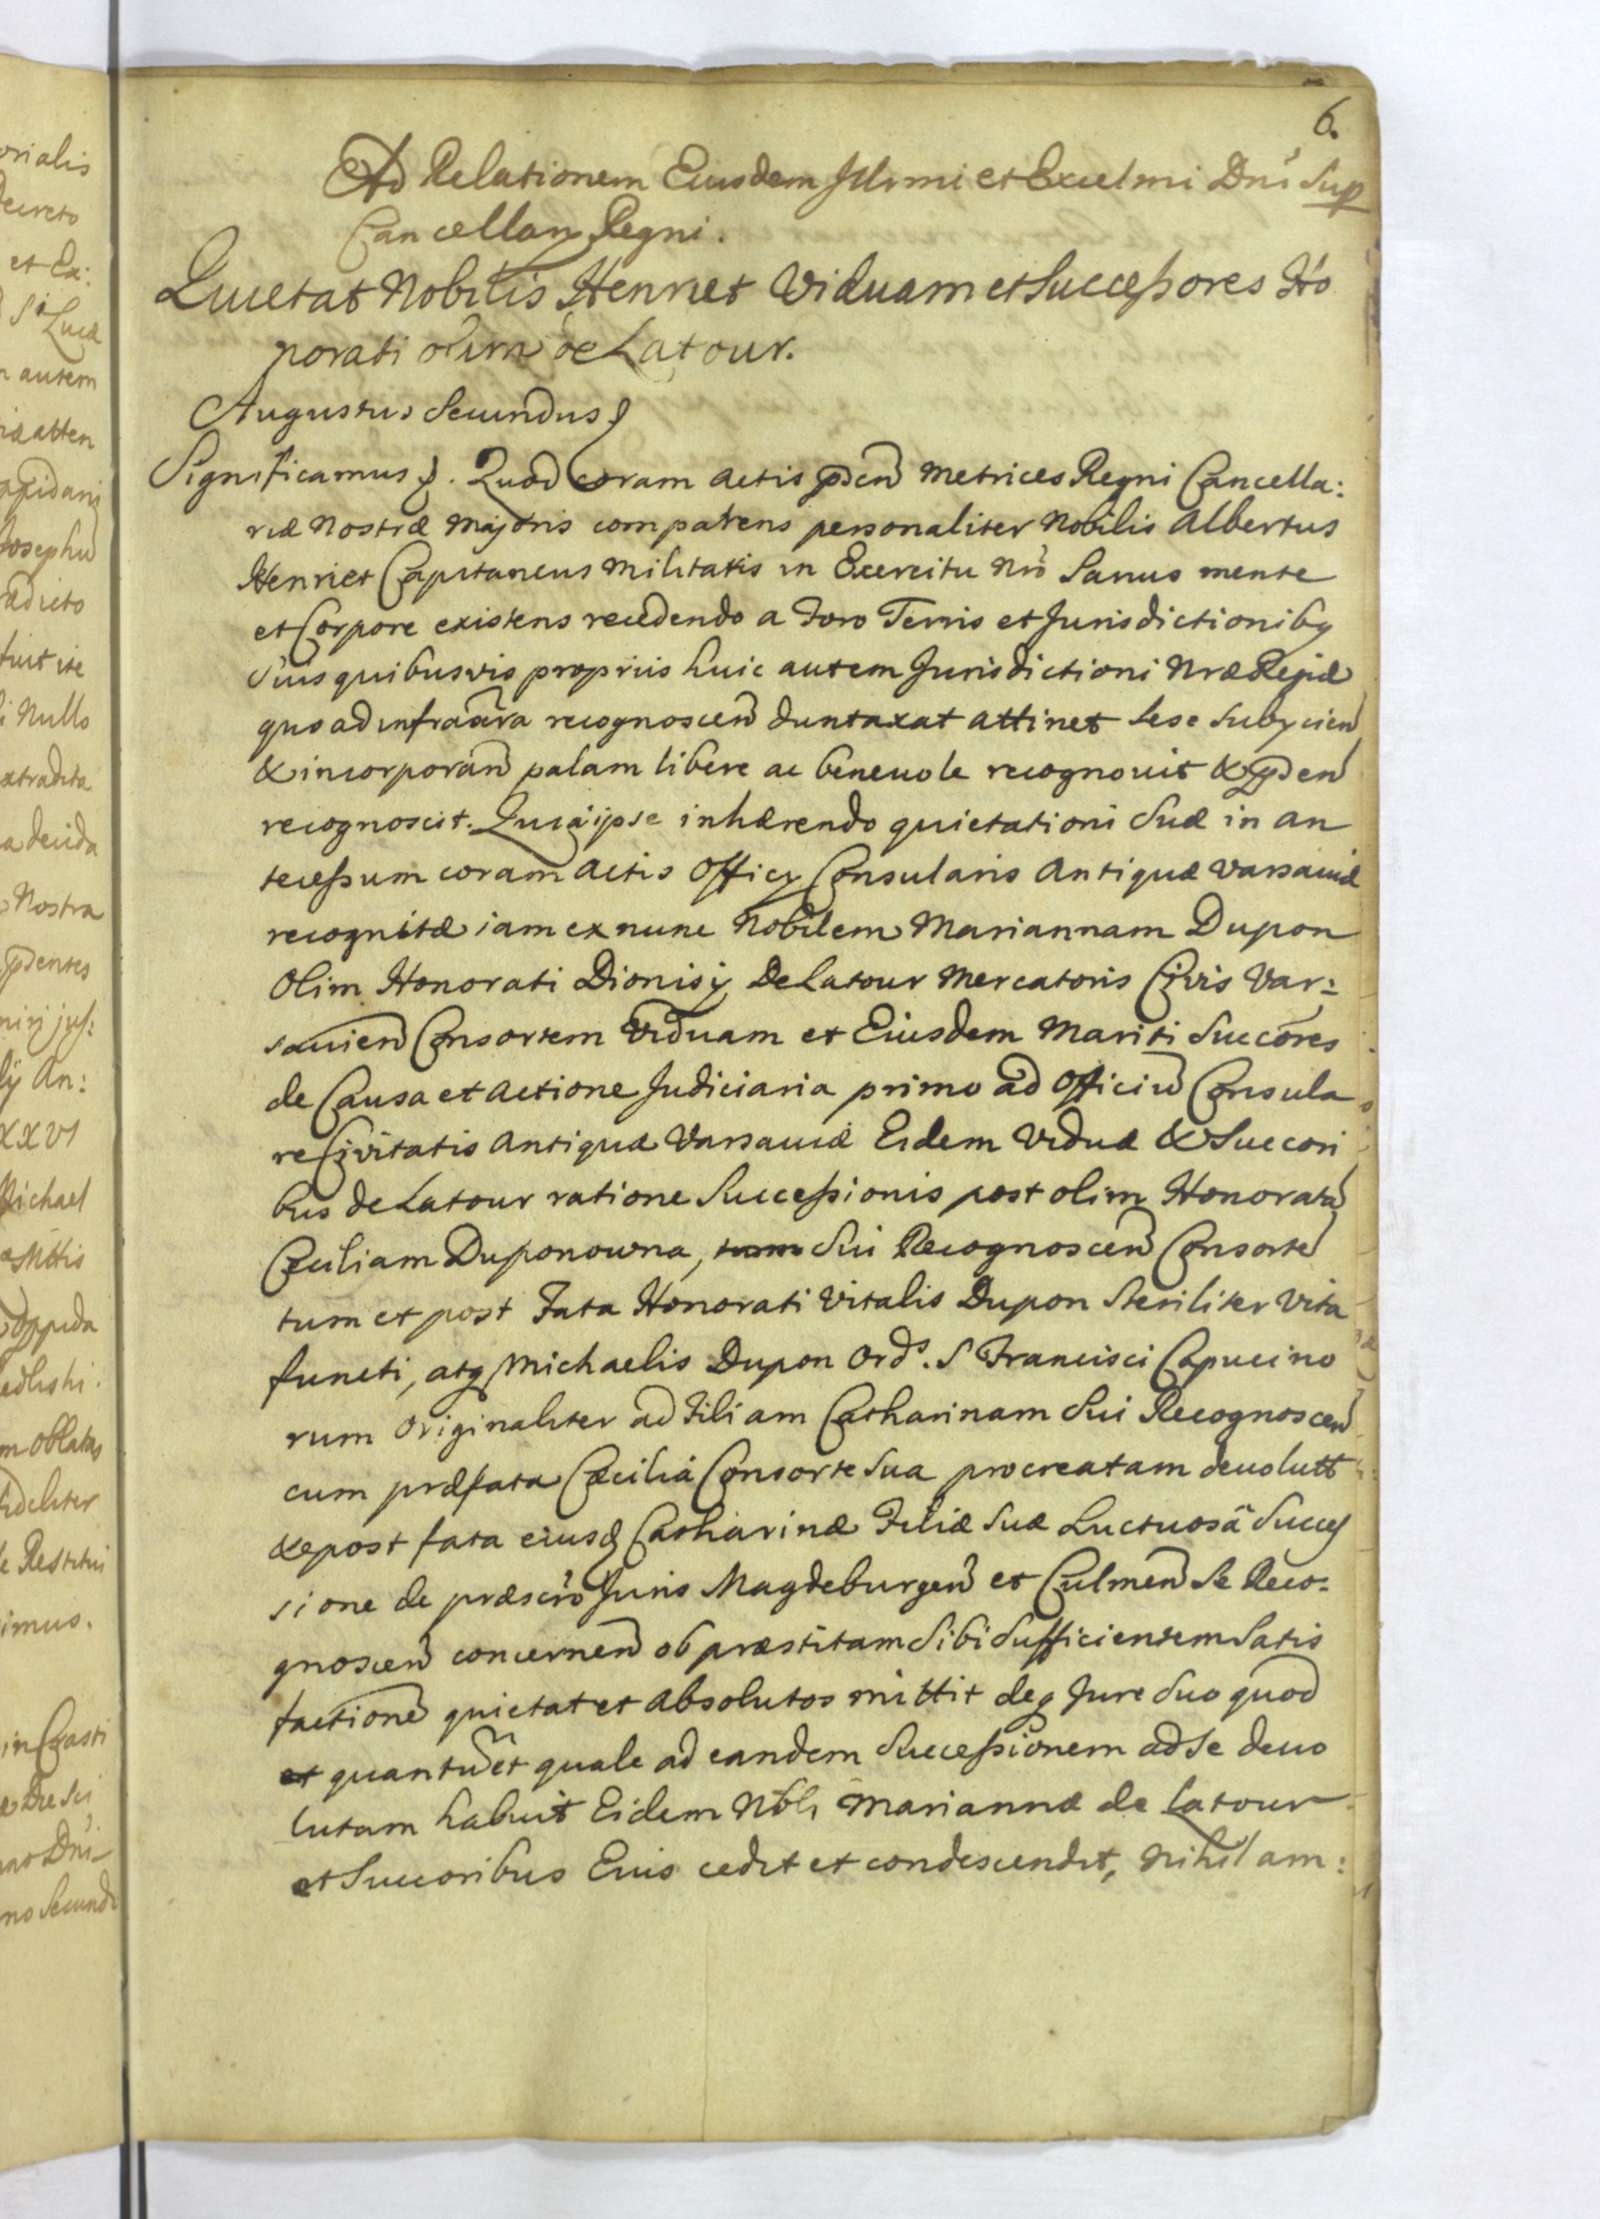 orialis
Decreto
et Ex:
S. Lucæ
autem
atten
oppidani
Josephu
tuit ite
Nullo
extradita
decida
Nostra
pdentes
An:
XXVI
Michael
Oppida
oblatas
fideliter
Restitui
imus.
in Casti
Dni
no Secundi
6.
Ad Relationem Eiusdem Illrmi et Excelmi Dni Sup
Cancellarij Regni.
Quietat Nobilis Hennet Viduam et Successores Ho
norati olim de Latour.
Augustus Secundus
Significamus. Quod coram Actis pden Metrices Regni Cancella:
riæ Nostræ Majoris comparens personaliter Nobilis Albertus
Henriet Capitaneus Militaris in Exercitu Nro Sanus mente
et Corpore existens recedendo a Foro Terris et Jurisdictionibq
Suis quibusvis propriis huic autem Jurisdictioni Nræ Regiæ
quo ad infrascra recognoscen duntaxat attinet sese subijcien
& incorporan palam libere ac beneuole recognouit & pden
recognoscit. Quia ipse inhærendo quietationi Suæ in an
tecessum coram Actis Officij Consularis Antiquæ Varsauiæ
recognitæ iam ex nunc Nobilem Mariannam Dupon
Olim Honorati Dionisij De Latour Mercatoris Civis Var:
sauien Consortem Viduam et Eiusdem Mariti Succores
de Causa et Actione Judiciaria primo ad Officiu Consula
re Civitatis Antiquæ Varsauiæ Eidem Viduæ & Succori
bus de Latour ratione Successionis post olim Honorata
Ceciliam Duponowna, Sui Recognoscen Consorte
tum et post Fata Honorati Vitalis Dupon Steriliter Vita
functi, atq Michaelis Dupon Ords. S Francisci Capucino
rum Originaliter ad Filiam Catharinam Sui Recognoscen
cum præfata Cæcilia Consorte Sua procreatam deuolutt
& post fata eiusd Catharinæ Filiæ Suæ Luctuosa Succes
sione de præscro Juris Magdeburgen et Culmen Se Reco-
gnoscen concernen ob præstitam Sibi Sufficientem Satis
factione quietat et Absolutos mittit deq Jure Suo quod
et quantu et quale ad eandem Successionem ad Se deuo
lutam habuit Eidem Nbli Mariannæ de Latour
et Succoribus Eius cedit et condescendit, Nihil am: